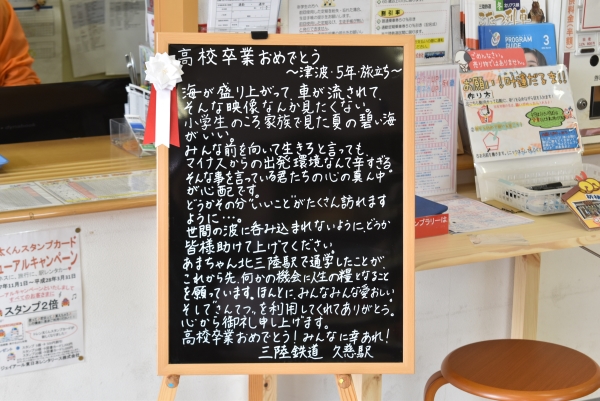 高校卒業おめでとう
〜津波・5年・旅立ち〜
海が盛り上がって、車が流されて、
そんな映像なんか見たくない。
小学生のころ、家族で見た夏の碧い海
がいい。
みんな前を向いて生きろと言っても、
マイナスからの出発環境なんて辛すぎる。
そんな事を言っている君たちの心の真ん中
が心配です。
どうかその分“いいこと”がたくさん訪れます
ように…。
世間の波に呑み込まれないように、どうか
皆様助けて上げてください。
あまちゃん北三陸駅で通学したことが、
これから先、何かの機会に人生の糧となること
を願っています。ほんとに、みんなみんな愛おしい。
そして“さんてつ”を利用してくれてありがとう。
心から御礼申し上げます。
高校卒業おめでとう！みんなに幸あれ！
三陸鉄道 久慈駅
PROGRAM
GUIDE
3
ごめんなさい。
売り物ではありません。
お願い叶うだるま！！
作り方
くんスタンプカード
ューアルキャンペーン
スタンプ2倍
プラリー